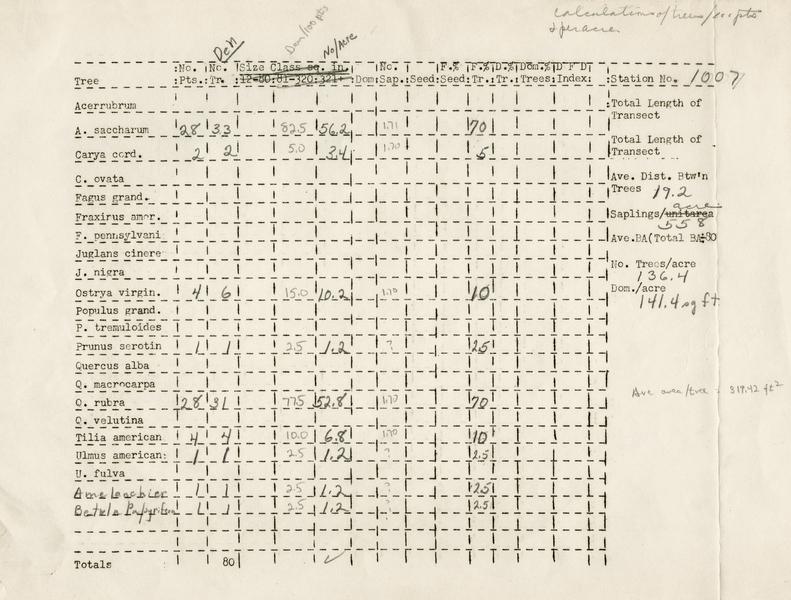 calculations of trees/100 pts
& per acre
Den Dom/100 pts No/Acre
:No. :No. :Size Class sq. in. : :No. : :F.% :F.% :D.% :Dom.% :D F D :
Tree :Pts.: Tr. :12-80:81-320:321+ :Dom:Sap.:Seed:Seed: Tr.: Tr.:Trees:Index: :Station No. 1007
Acerrubrum :Total Length of
Transect
A. saccharum 28 33 82.5 56.2 1.71 70
Total Length of
Carya cord. 2 2 5.0 3.4 1.70 5 Transect
C. ovata Ave. Dist. Btw'n
Fagus grand. Trees 19.2
acre
Fraxirus amer. Saplings/unitarea
558
F. pennsylvani Ave.BA(Total BA÷80
Juglans cinere
J. nigra No. Trees/acre
136.4
Ostrya virgin. 4 6 15.0 10.2 1.70 10 Dom./acre
141.4 sq ft
Populus grand.
P. tremuloides
Prunus serotin 1 1 2.5 1.2 ? 2.5
Quercus alba
Q. macrocarpa Ave area/tree = 319.42 ft²
Q. rubra 28 31 77.5 52.8 1.70 70
Q. velutina
Tilia american 4 4 10.0 6.8 1.70 10
Ulmus american: 1 1 2.5 1.2 ? 2.5
U. fulva
1 1 2.5 1.2 ? 2.5
Betula Papyrifera 1 1 2.5 1.2 ? 2.5
Totals 80 ✓